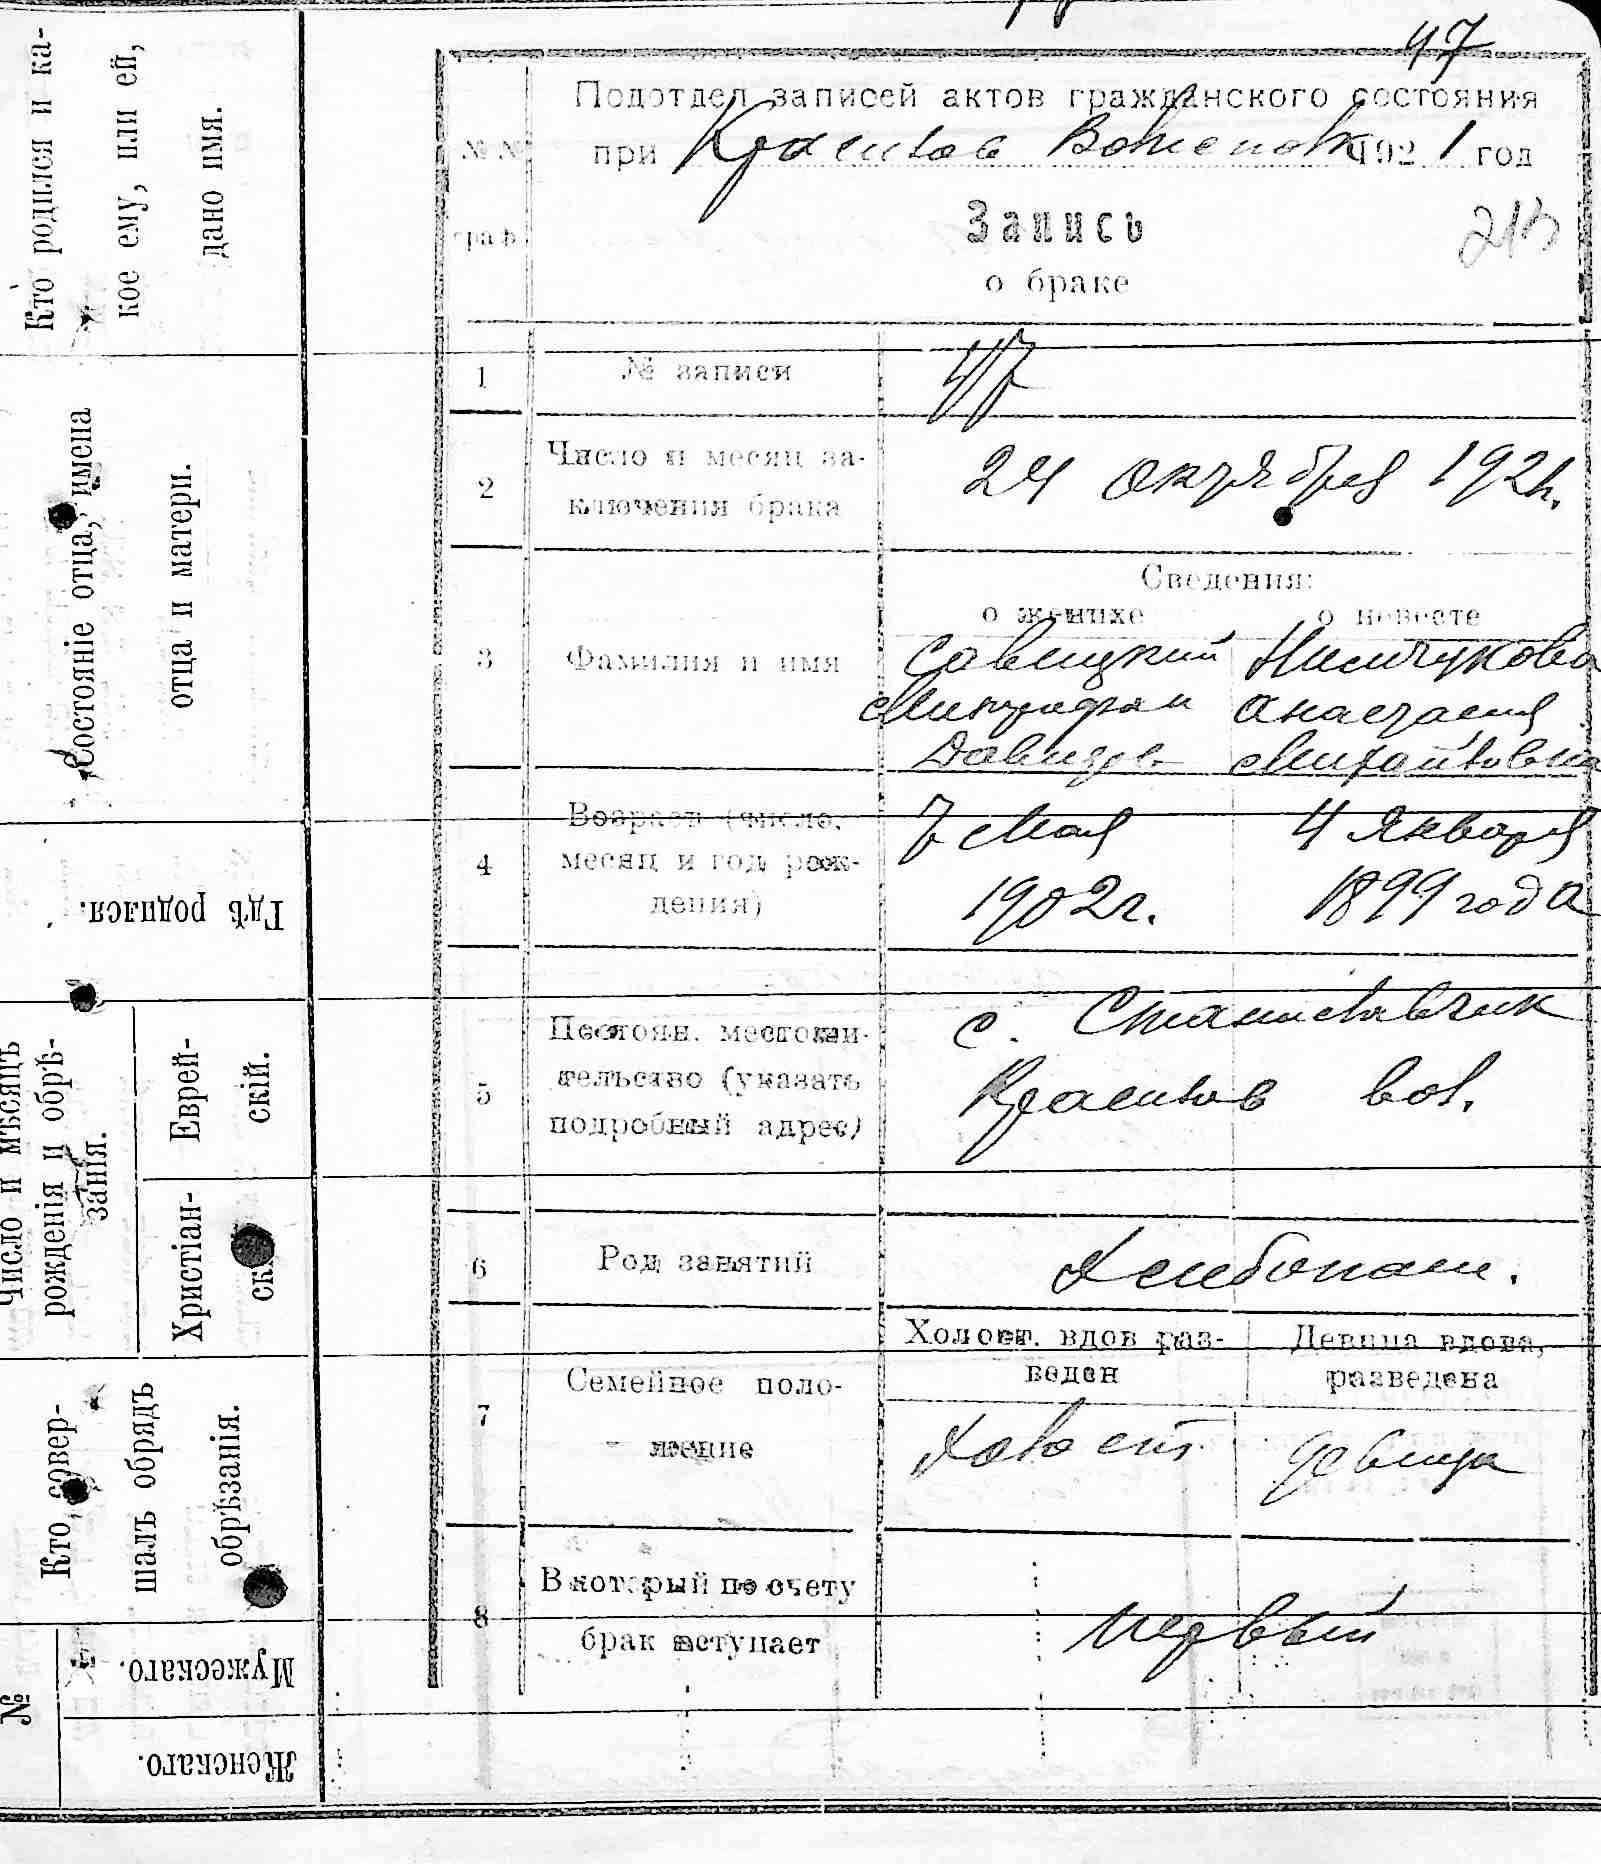 47
Подотдел записей актов гражданского состояния
при Красилов Волисполк 1921 год
№ №
граф.
Запись
о браке
1 № записи 47
2 Число и месяц за-
ключения брака
24 октября 1921г.
Сведения:
о женихе о невесте
3 Фамилия и имя
Савицкий
Митрофан
Давидов.
Анастасия
Михайловна
4 Возраст (число,
месяц и год рож-
дения)
7 мая
1902г.
4 Января
1899 года
5 Постоян. местожи-
тельство (указать
подробный адрес)
с. Станиславчик
Красилов вол.
6 Род занятий
Хлебопаш.
7 Семейное поло-
жение
Холост. вдов раз-
веден
Девица вдова,
разведена
Холост
девица
8 В который по счету
брак вступает
первый
Кто родился и ка-
кое ему, или ей,
дано имя.
Состояніе отца, имена
отца и матери.
Гдѣ родился.
Число и мѣсяцъ
рожденія и обрѣ-
занія.
Еврей-
скій.
Христіан-
Кто совер-
шалъ обрядъ
обрѣзанія.
№
Мужескаго.
Женскаго.